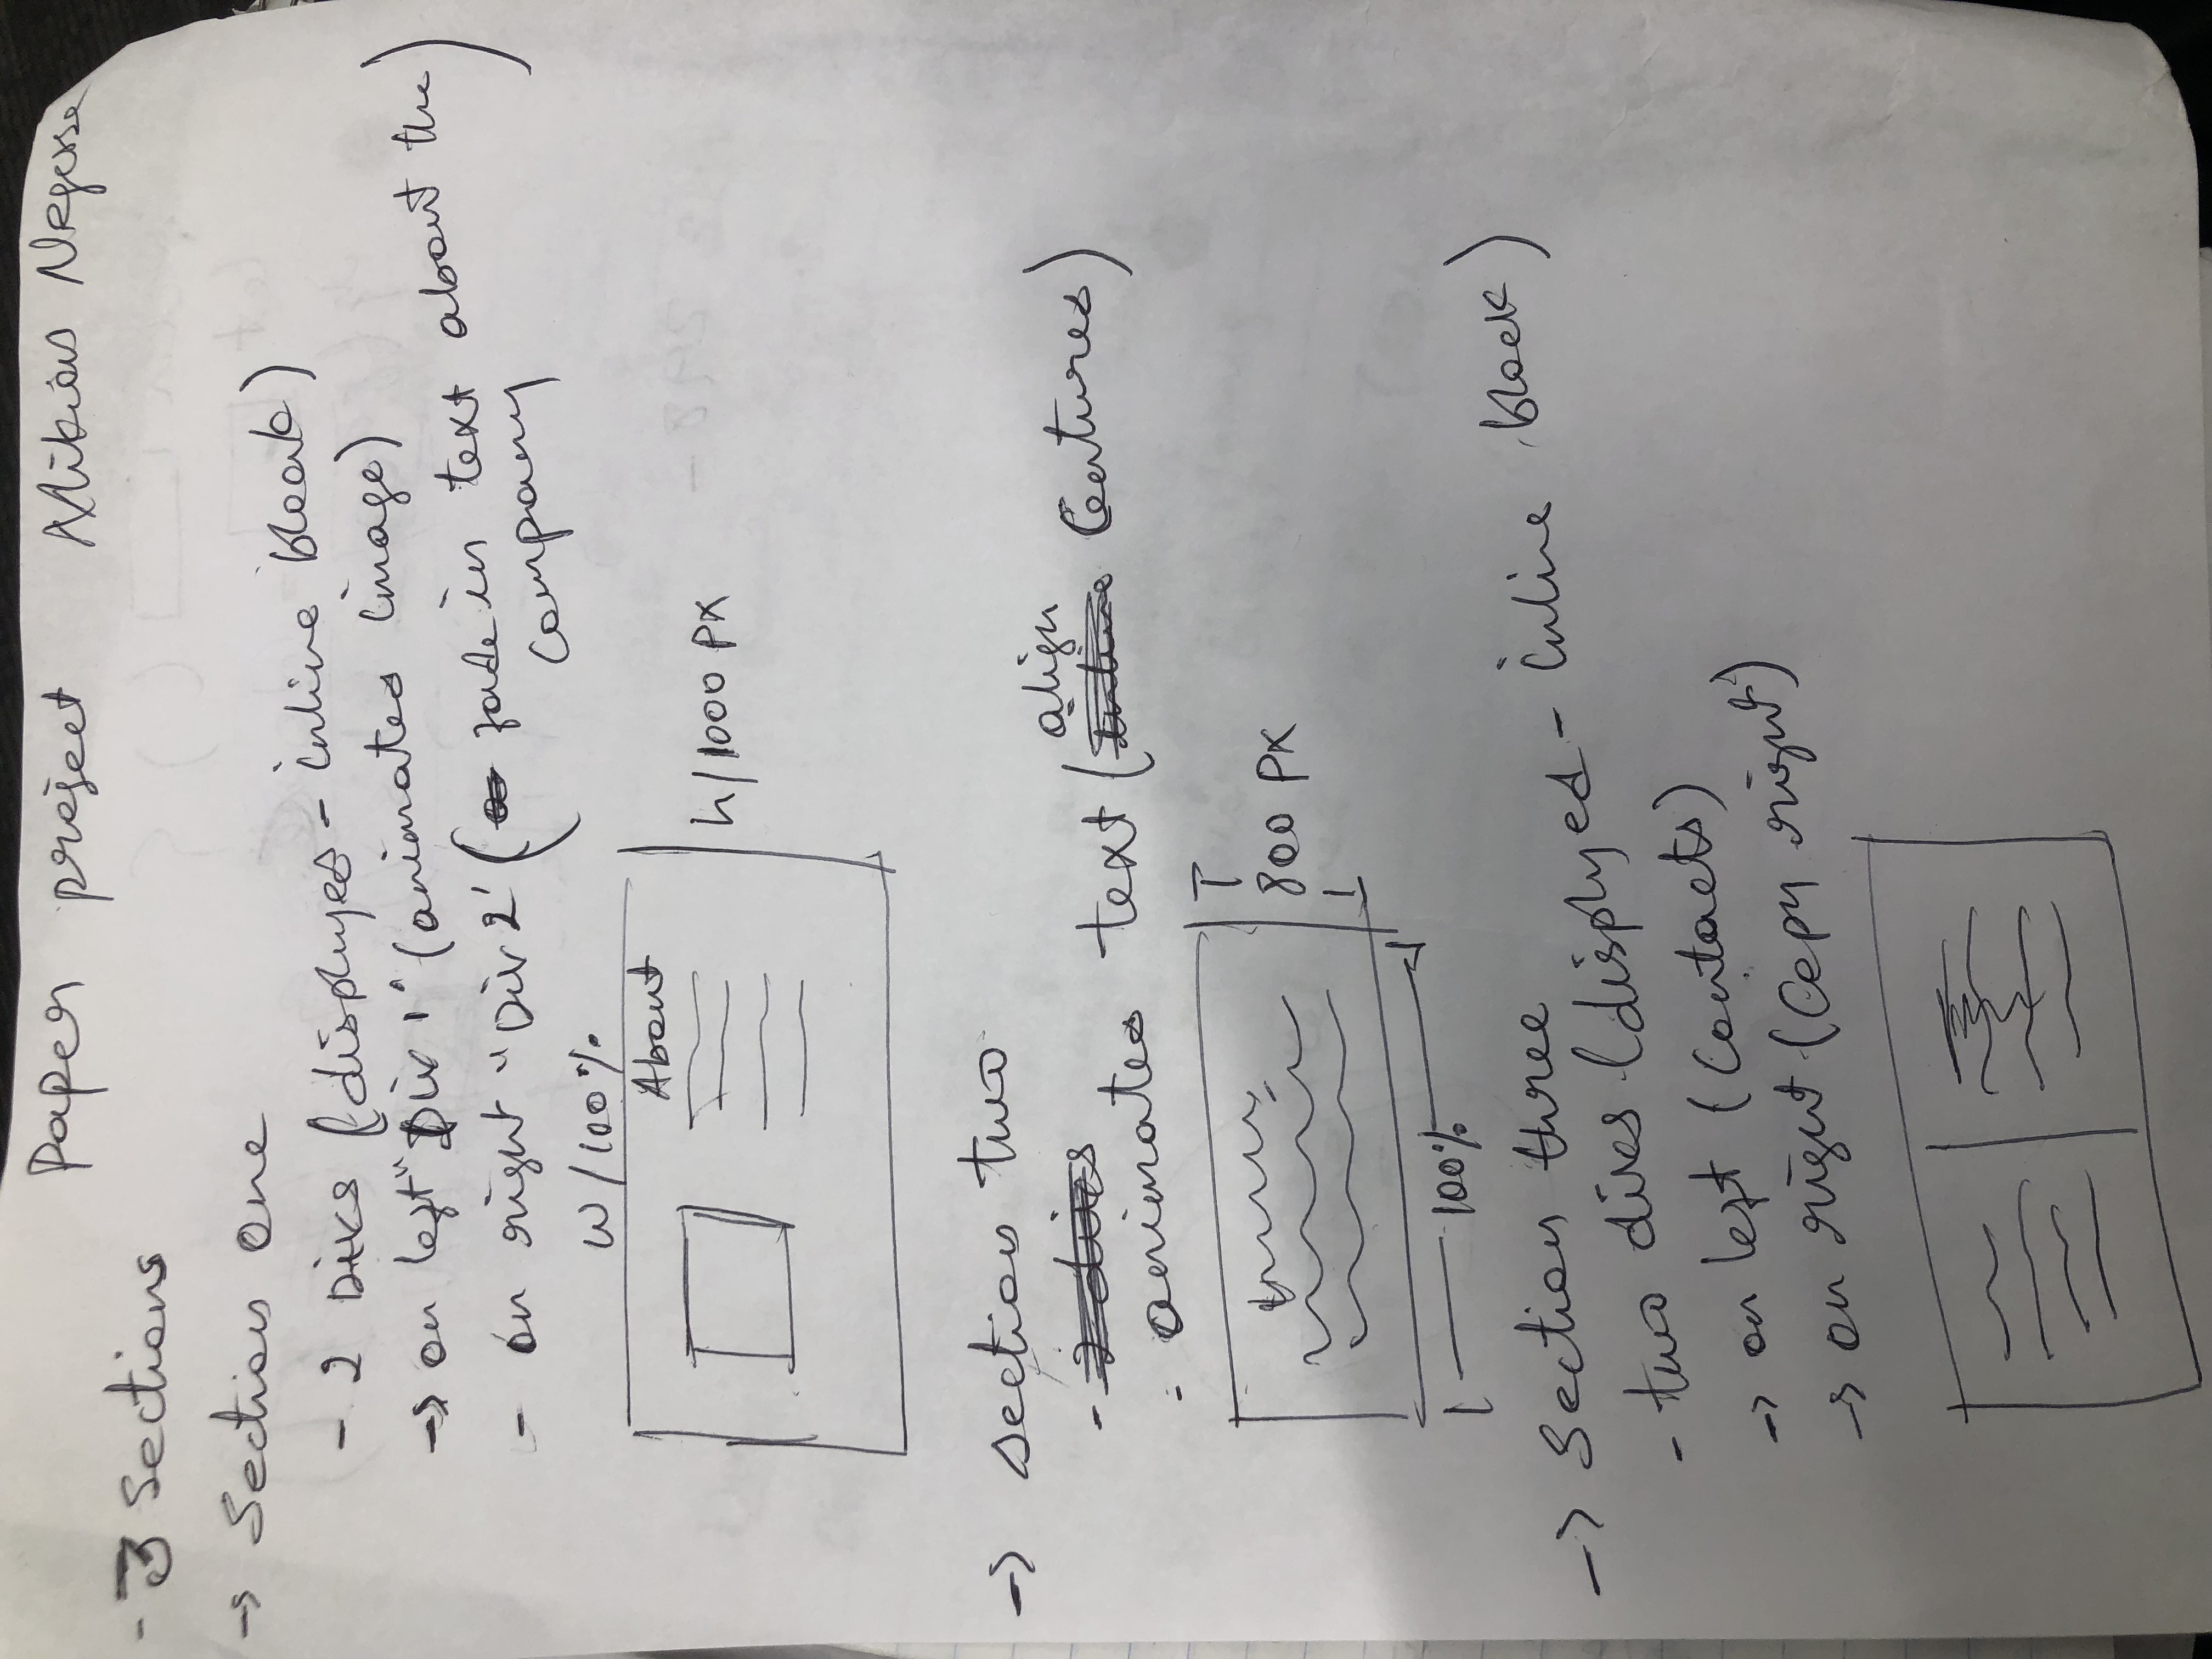 Paper project Mikias Negesse
- 3 Sections
→ Section One
- 2 Divs (displyed - inline block)
→ on left "Div 1" (animated image)
- on right "Div 2" ( fade in text about the company)
W/100%
About
h/1000 PX
→ section two
- 2 divs
- animated text (align Centured)
800 PX
100%
→ Section three
- two divs (displyed - inline block)
→ on left (Contacts)
→ on right (Copy right)